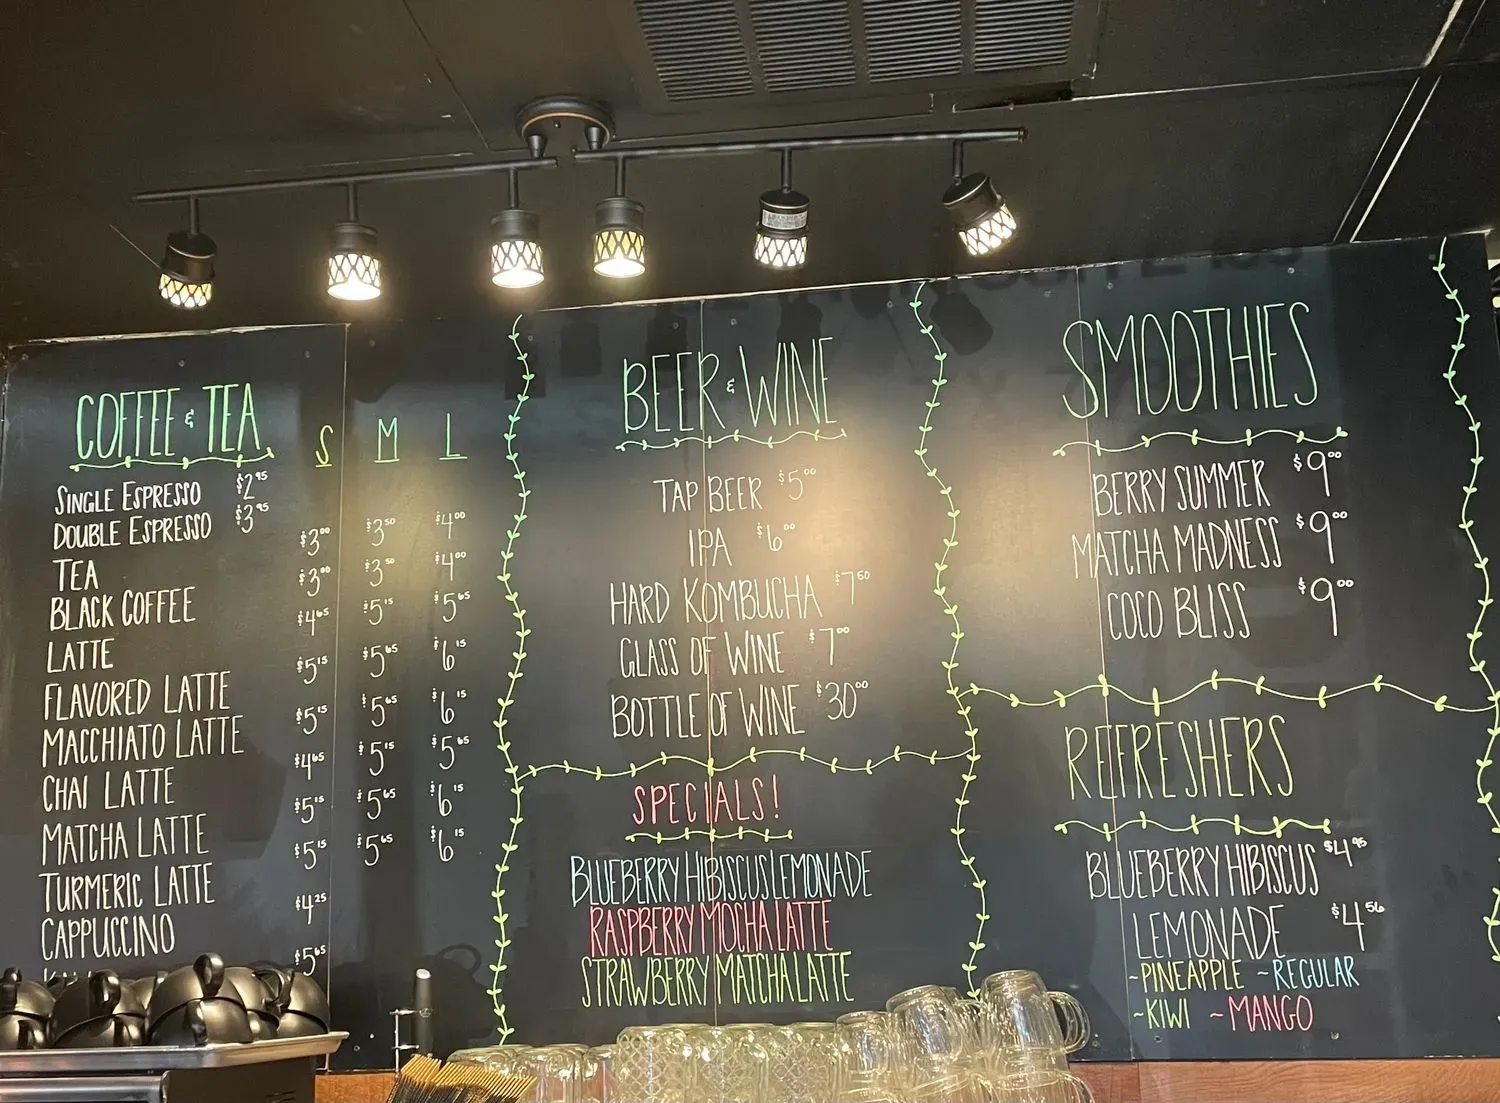 COFFEE & TEA S M L
SINGLE ESPRESSO $2.95
DOUBLE ESPRESSO $3.95
TEA $3.00 $3.50 $4.00
BLACK COFFEE $3.00 $3.50 $4.00
LATTE $4.65 $5.15 $5.65
FLAVORED LATTE $5.15 $5.65 $6.15
MACCHIATO LATTE $5.15 $5.65 $6.15
CHAI LATTE $4.65 $5.15 $5.65
MATCHA LATTE $5.15 $5.65 $6.15
TURMERIC LATTE $5.15 $5.65 $6.15
CAPPUCCINO $4.25
$5.65
BEER & WINE
TAP BEER $5.00
IPA $6.00
HARD KOMBUCHA $7.50
GLASS OF WINE $7.00
BOTTLE OF WINE $30.00
SPECIALS!
BLUEBERRY HIBISCUS LEMONADE
RASPBERRY MOCHA LATTE
STRAWBERRY MATCHA LATTE
SMOOTHIES
BERRY SUMMER $9.00
MATCHA MADNESS $9.00
COCO BLISS $9.00
REFRESHERS
BLUEBERRY HIBISCUS $4.95
LEMONADE $4.50
~PINEAPPLE ~REGULAR
~KIWI ~MANGO